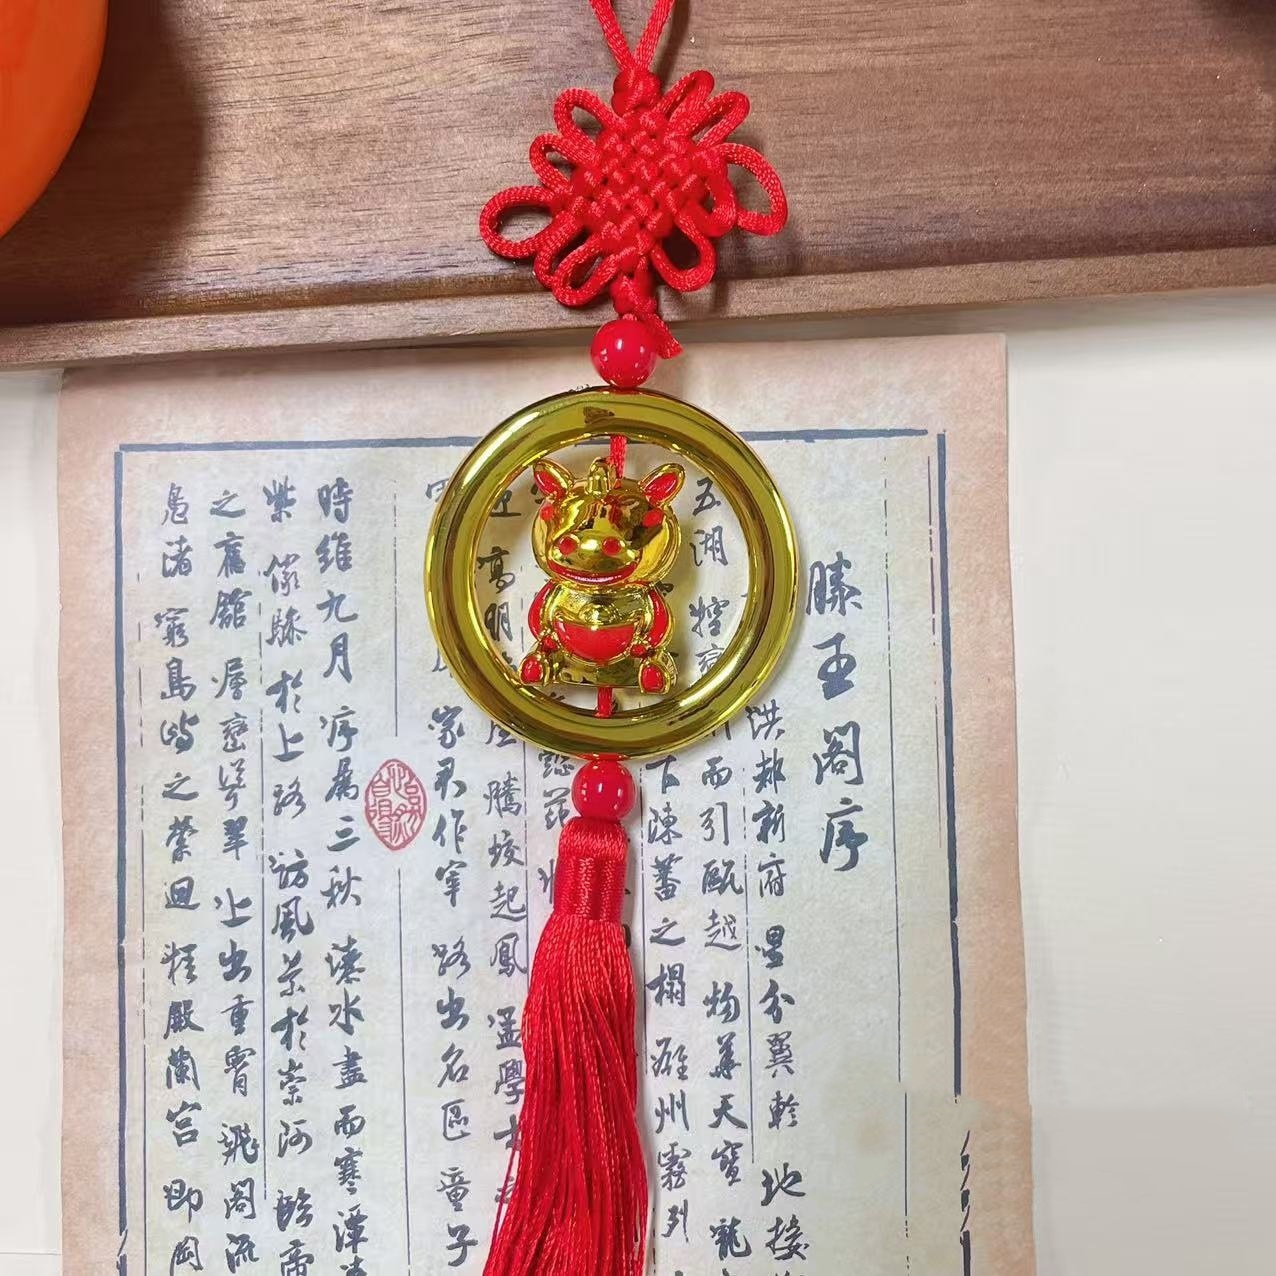 滕王閣序
洪都新府 星分翼軫 地接
五湖 控蠻 而引甌越 物華天寶 龍
下陳蕃之榻 雄州霧列
懿範
高朋 騰蛟起鳳 孟學士
家君作宰 路出名區 童子
時維九月 序屬三秋 潦水盡而寒潭
紫 儼驂於上路 訪風景於崇阿 臨帝
之舊館 層巒聳翠 上出重霄 飛閣流
鳧渚 窮島嶼之縈迴 桂殿蘭宮 即岡